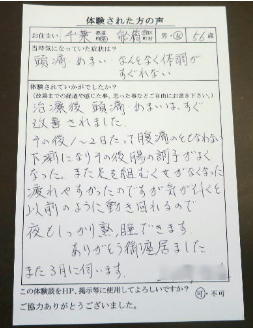 体験された方の声
お住まい 千葉 都道府県 船橋 市区町村 男・女 56歳
当時気になっていた症状は？
頭痛 めまい なんとなく体調が
すぐれない
体験されていかがでしたか？
治療後 頭痛 めまいは、すぐ
改善されました
その後1〜2日たって腹痛のともなわない
下痢になりその後腸の調子がよく
なった。また足を組むくせがなくなった
疲れやすかったのですが気が付くと
以前のように動き回れるので
夜もしっかり熟睡できます
ありがとう御座居ました
また3月に伺います
この体験談をHP、掲示等に使用してよろしいですか？ 可・不可
ご協力ありがとうございました。